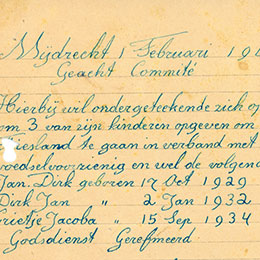 Mijdrecht 1 Februari 19
Geacht Commité
Hierbij wil ondergeteekende zich op
om 3 van zijn kinderen opgeven om
Friesland te gaan in verband met
voedselvoorzienig en wel de volgend
Jan. Dirk geboren 17 Oct 1929
Dirk Jan " 2 Jan 1932
Grietje Jacoba " 15 Sep 1934
Godsdienst Gerefmeerd